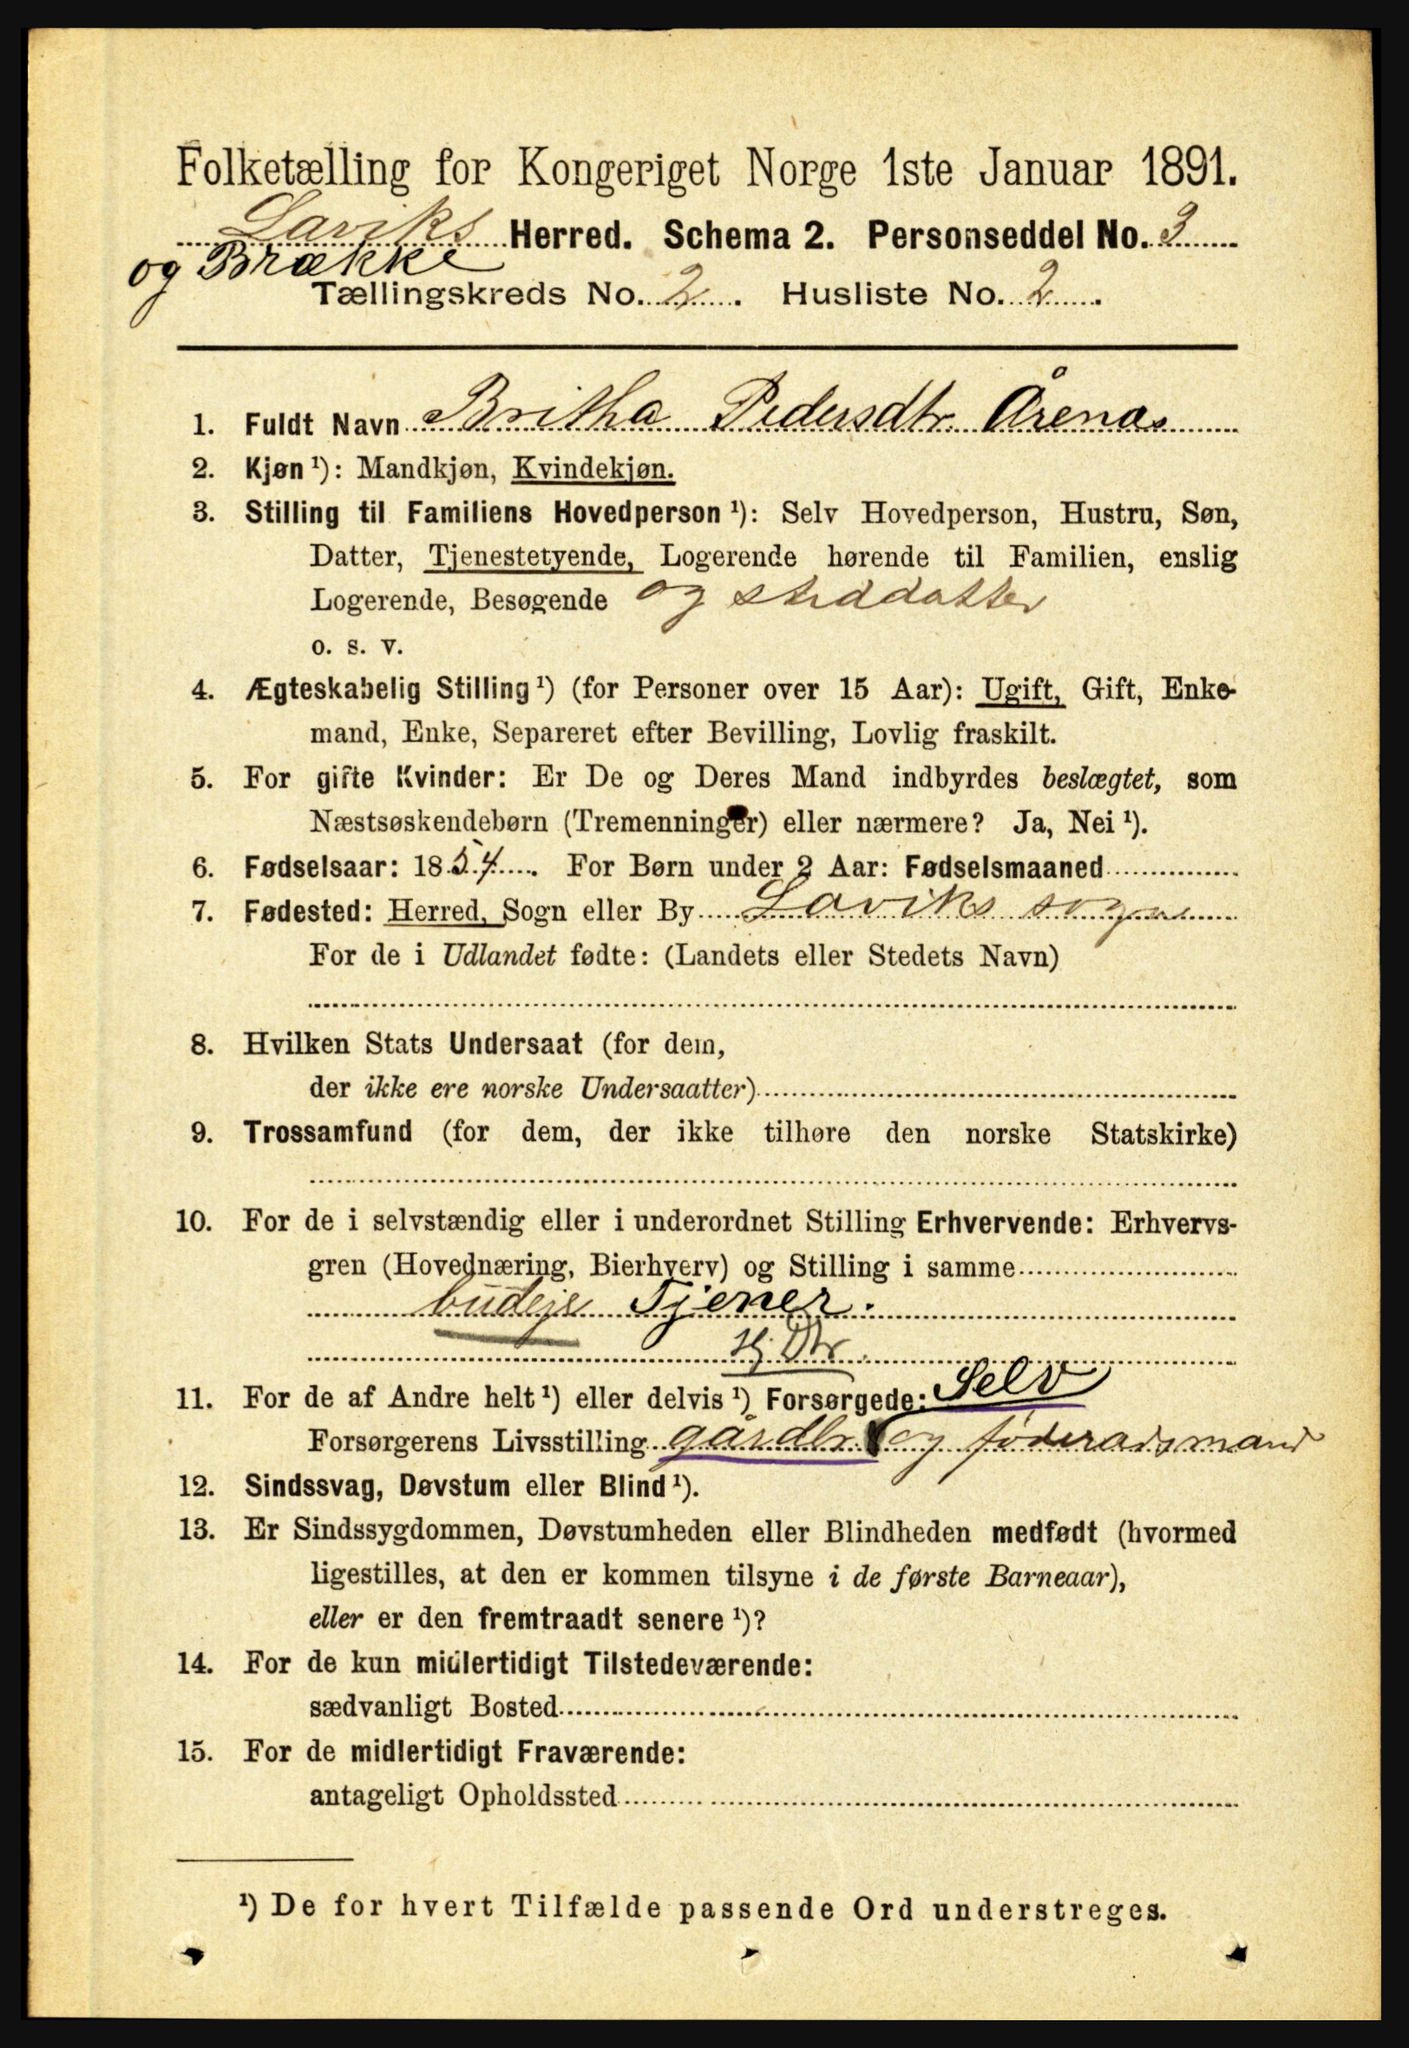 Folketælling for Kongeriget Norge 1ste Januar 1891.
Laviks Herred. Schema 2. Personseddel No. 3
og Brække
Tællingskreds No. 2. Husliste No. 2.
1. Fuldt Navn Britha Pedersdtr. Årenæs
2. Kjøn ¹): Mandkjøn, Kvindekjøn.
3. Stilling til Familiens Hovedperson ¹): Selv Hovedperson, Hustru, Søn,
Datter, Tjenestetyende, Logerende hørende til Familien, enslig
Logerende, Besøgende og steddatter
o. s. v.
4. Ægteskabelig Stilling ¹) (for Personer over 15 Aar): Ugift, Gift, Enke-
mand, Enke, Separeret efter Bevilling, Lovlig fraskilt.
5. For gifte Kvinder: Er De og Deres Mand indbyrdes beslægtet, som
Næstsøskendebørn (Tremenninger) eller nærmere? Ja, Nei ¹).
6. Fødselsaar: 1854. For Børn under 2 Aar: Fødselsmaaned
7. Fødested: Herred, Sogn eller By Laviks sogn
For de i Udlandet fødte: (Landets eller Stedets Navn)
8. Hvilken Stats Undersaat (for dem,
der ikke ere norske Undersaatter)
9. Trossamfund (for dem, der ikke tilhøre den norske Statskirke)
10. For de i selvstændig eller i underordnet Stilling Erhvervende: Erhvervs-
gren (Hovednæring, Bierhverv) og Stilling i samme
budeje Tjener.
Hj Dtr.
11. For de af Andre helt ¹) eller delvis ¹) Forsørgede: Selv
Forsørgerens Livsstilling gårdbr og føderadsmand
12. Sindssvag, Døvstum eller Blind ¹).
13. Er Sindssygdommen, Døvstumheden eller Blindheden medfødt (hvormed
ligestilles, at den er kommen tilsyne i de første Barneaar),
eller er den fremtraadt senere ¹)?
14. For de kun midlertidigt Tilstedeværende:
sædvanligt Bosted
15. For de midlertidigt Fraværende:
antageligt Opholdssted
¹) De for hvert Tilfælde passende Ord understreges.